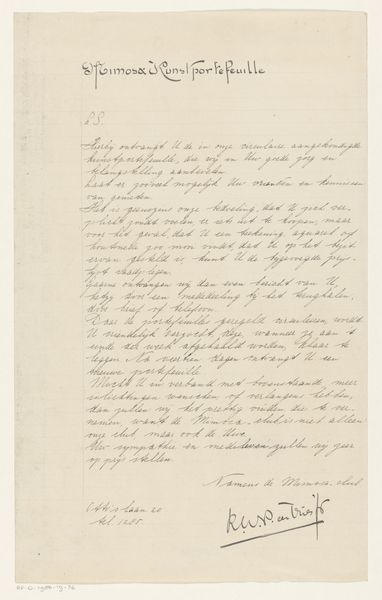 Mimosa Kunstportefeuille
L.S.
Hierbij ontvangt U de in onze circulaire aangekondigde
kunstportefeuille, die wij in Uw goede zorg en
belangstelling aanbevelen.
Laat er zooveel mogelijk Uw vrienden en kennissen
van genieten.
Het is geenszins onze bedoeling, dat U zich ver-
plicht zoudt voelen er iets uit te koopen, maar
voor het geval, dat U een teekening, aquarel of
houtsnede zoo mooi vindt, dat U op het bezit
ervan gesteld is kunt U de bijgevoegde prijs-
lijst raadplegen.
Gaarne ontvangen wij dan even bericht van U,
hetzij door een mededeeling bij het terughalen,
dóór brief of telefoon.
Daar de portefeuilles geregeld circuleeren, wordt
U vriendelijk verzocht, deze, wanneer ze aan 't
einde der week afgehaald worden, klaar te
leggen. Na veertien dagen ontvangt U een
nieuwe portefeuille.
Mocht U in verband met bovenstaande, meer
inlichtingen wenschen of verlangens hebben,
dan zullen wij het prettig vinden die te ver-
nemen, want de Mimosa-club is niet alleen
onze club maar ook de Uwe.
Uw sympathie en medeleven zullen wij zeer
op prijs stellen.
Namens de Mimosa-club
laan 20
tel. 1285.